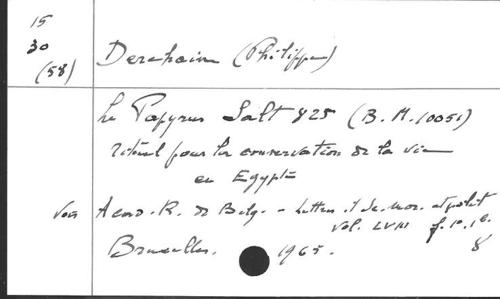 15
30
(58)
Derchain (Philippe)
Le Papyrus Salt 825 (B.M. 10051)
rituel pour la conservation de la vie
en Egypte
voir Acad. R. de Belg. - Lettres et Sc. mor. et polit
vol. LVIII f. 1a, 1b.
Bruxelles. 1965. 8